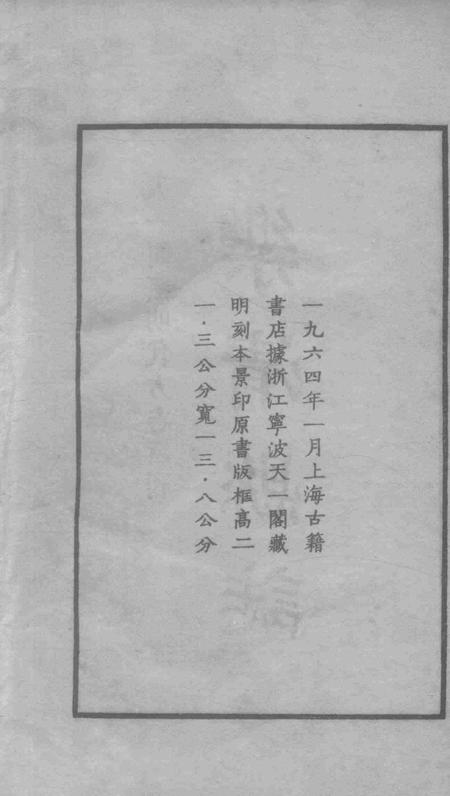 一九六四年一月上海古籍
書店據浙江寧波天一閣藏
明刻本景印原書版框高二
一·三公分寬一三·八公分